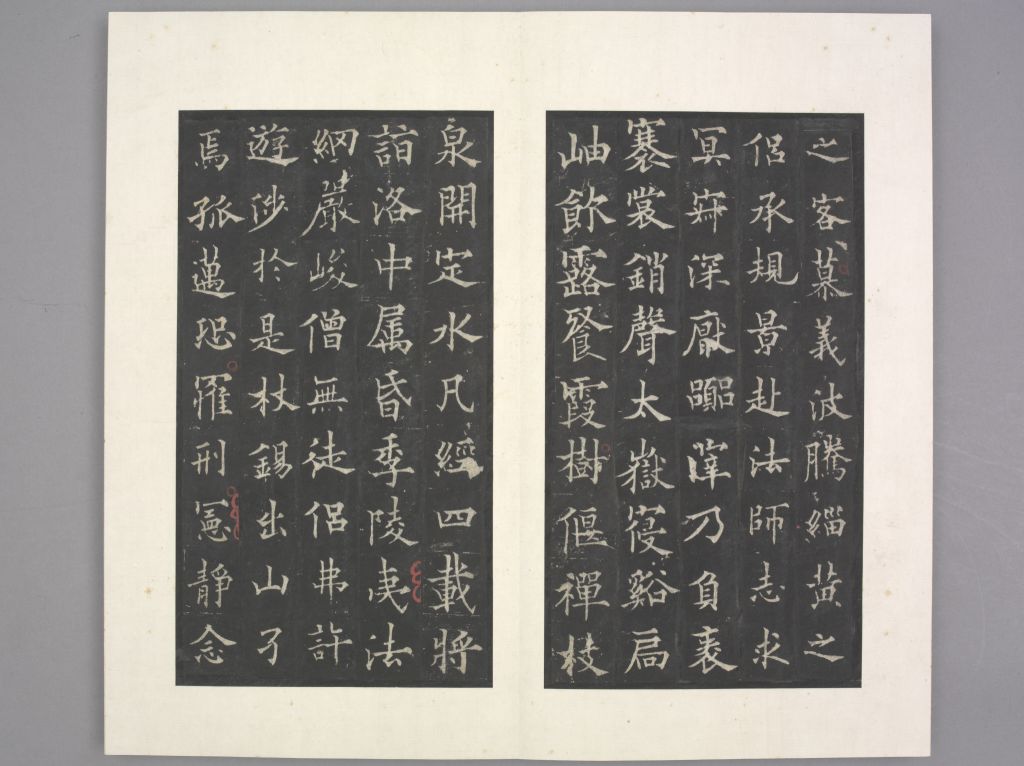 之客慕義波騰緇黃之
侶承規景赴法師志求
冥寂深厭嚻滓乃負袠
褰裳銷聲太嶽寑谿扃
岫飲露飡霞樹偃禪枝
泉開定水凡經四載將
詣洛中属昏季陵夷法
網嚴峻僧無徒侶弗許
遊涉於是杖錫出山孑
焉孤邁恐罹刑憲靜念